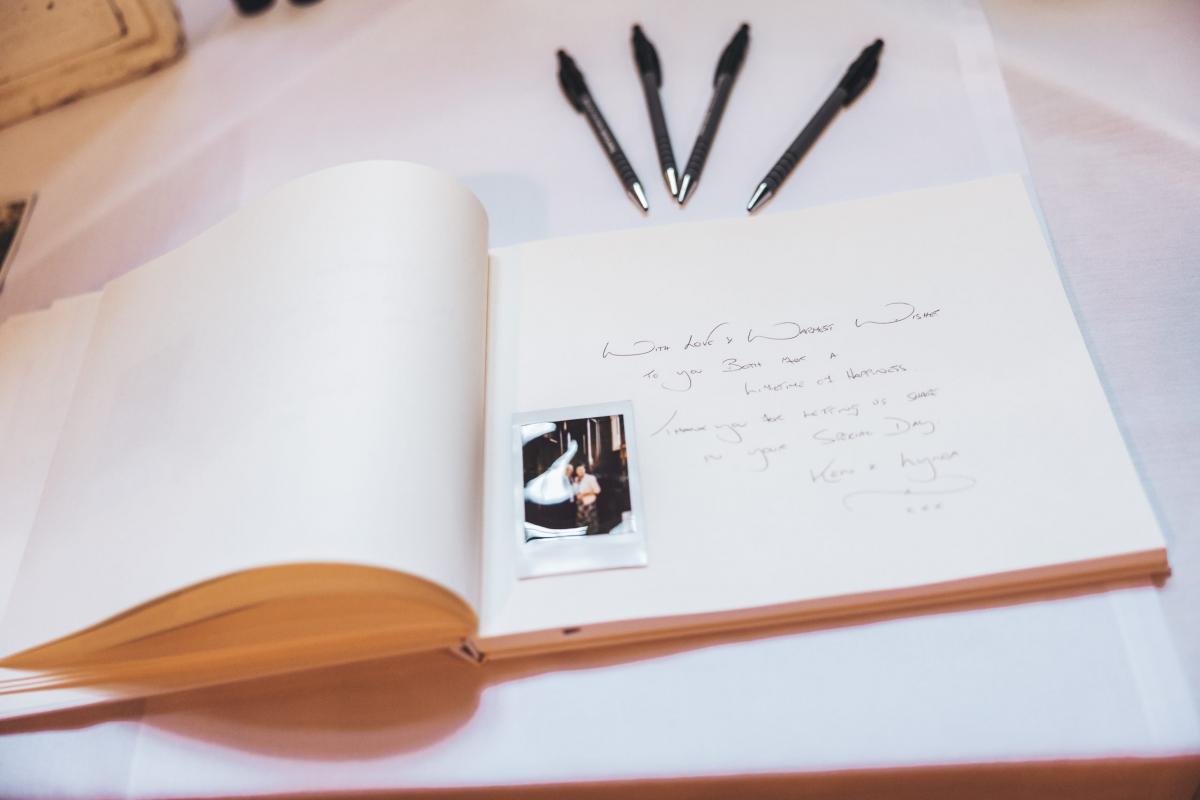 With Love & Warmest Wishe
to you Both have a
Lifetime of Happiness
Thank you for letting us share
in your Special Day
Ken & Lynda
xxx